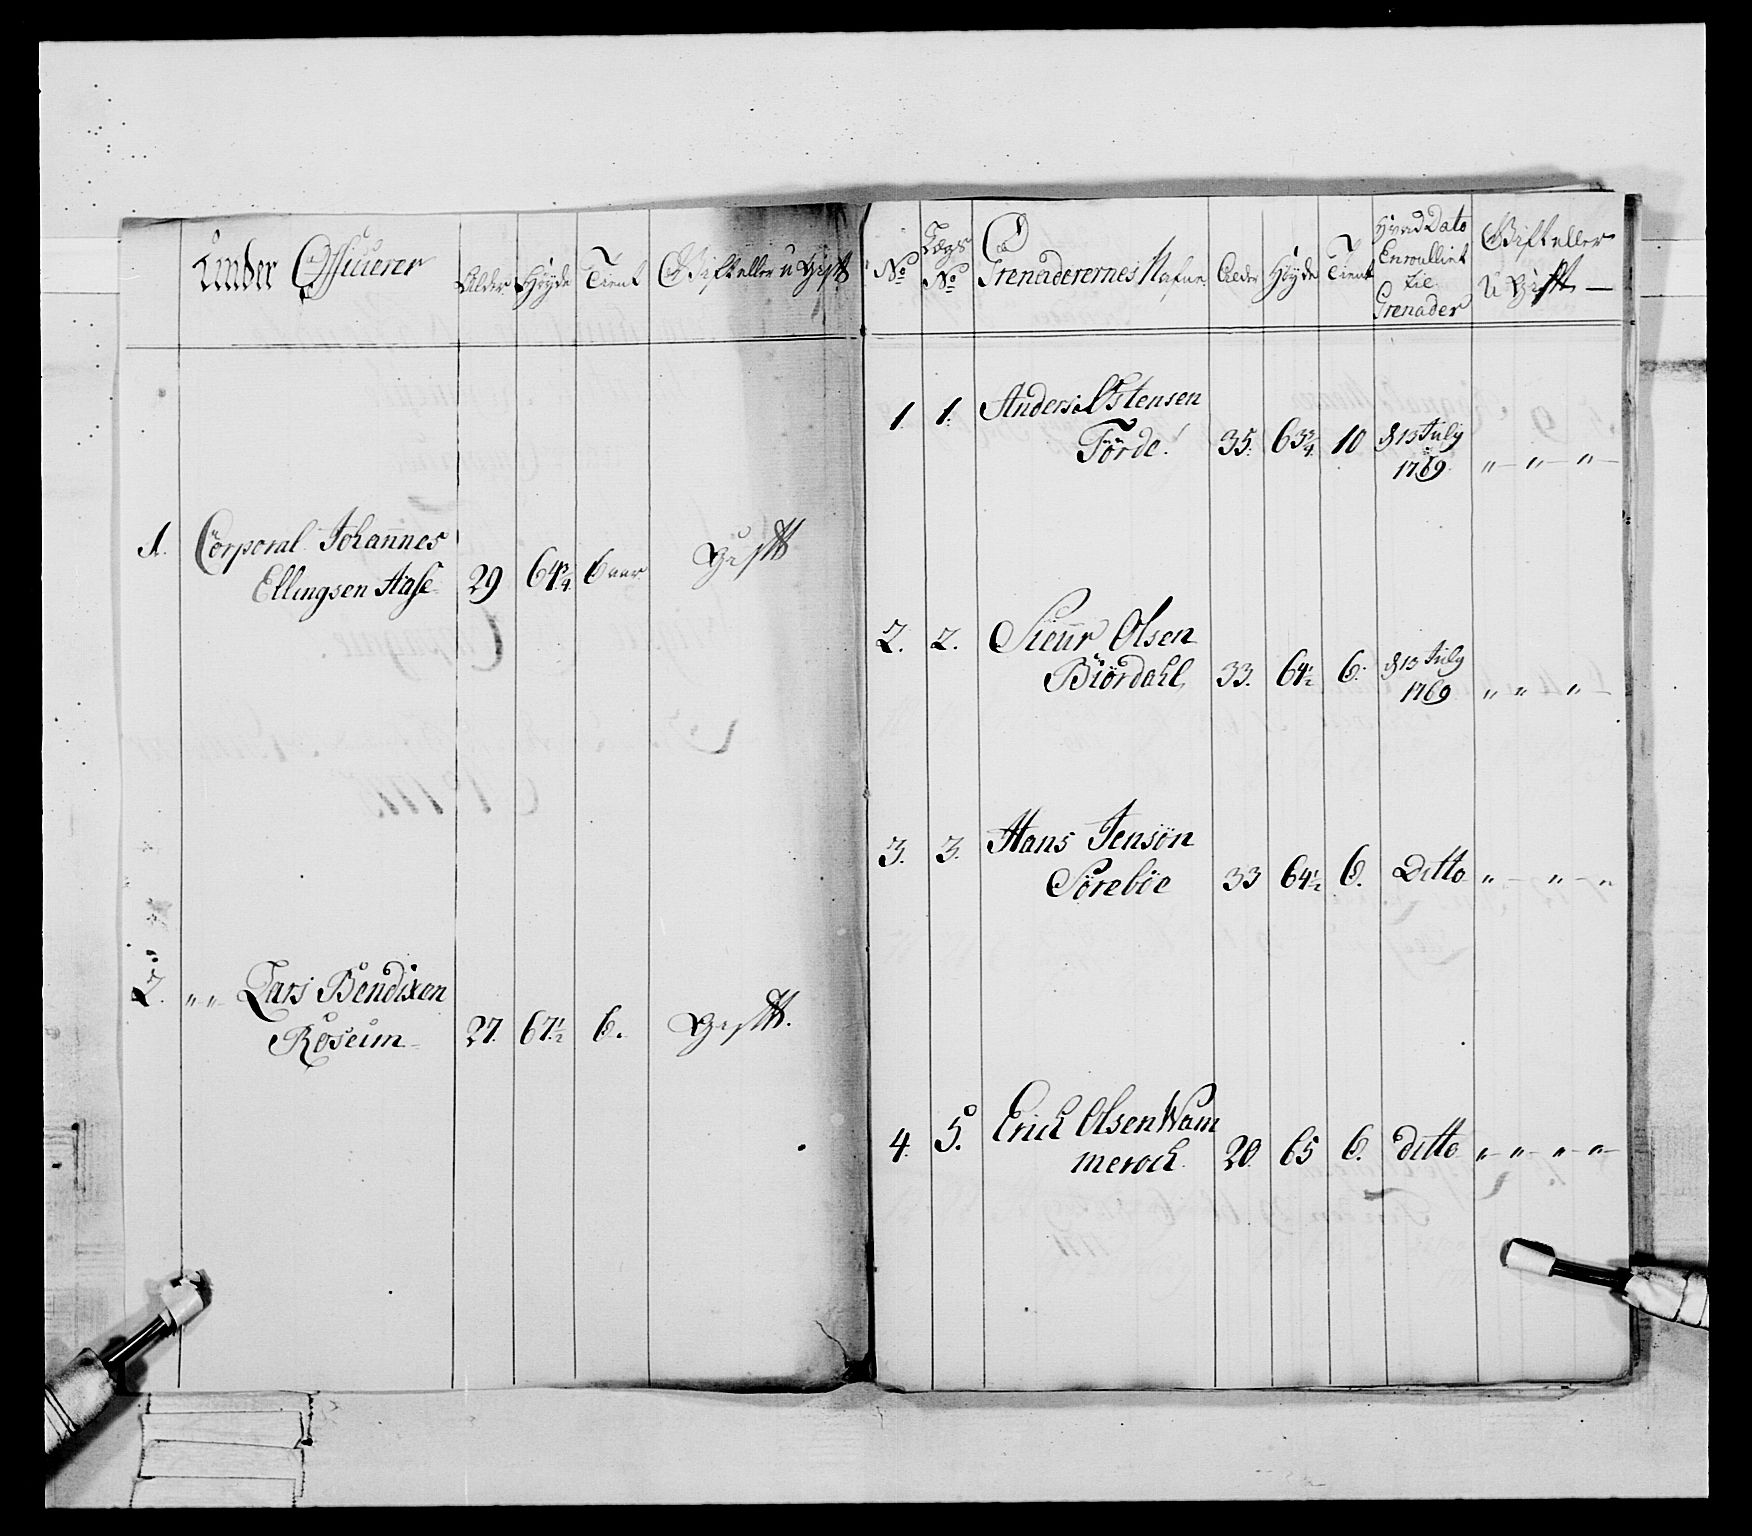 Under Officierer Alder Høyde Tient Gift eller u Gift
1. Corporal Johannes
Ellingsen Aase 29 64¾ 6 aar Gift
2. " " Lars Bendixen
Røseim 27. 67½ 6. Gift.
No Lægs No Grenaderernes Nafne Alder Høyde Tient Hvad Dato Enroullert til Grenader Gift eller U Gift
1. 1. Anders Østensen
Førde 35. 63¾ 10 d 13 July
1769. " " "
2. 2. Sieur Olsen
Biørdahl, 33. 64½ 6. d 13 July
1769 " " "
3. 3. Hans Jensøn
Sørebøe 33 64½ 6. Ditto " " "
4. 5. Erich Olsen Wam
meroch 20. 65 6. ditto " " " "